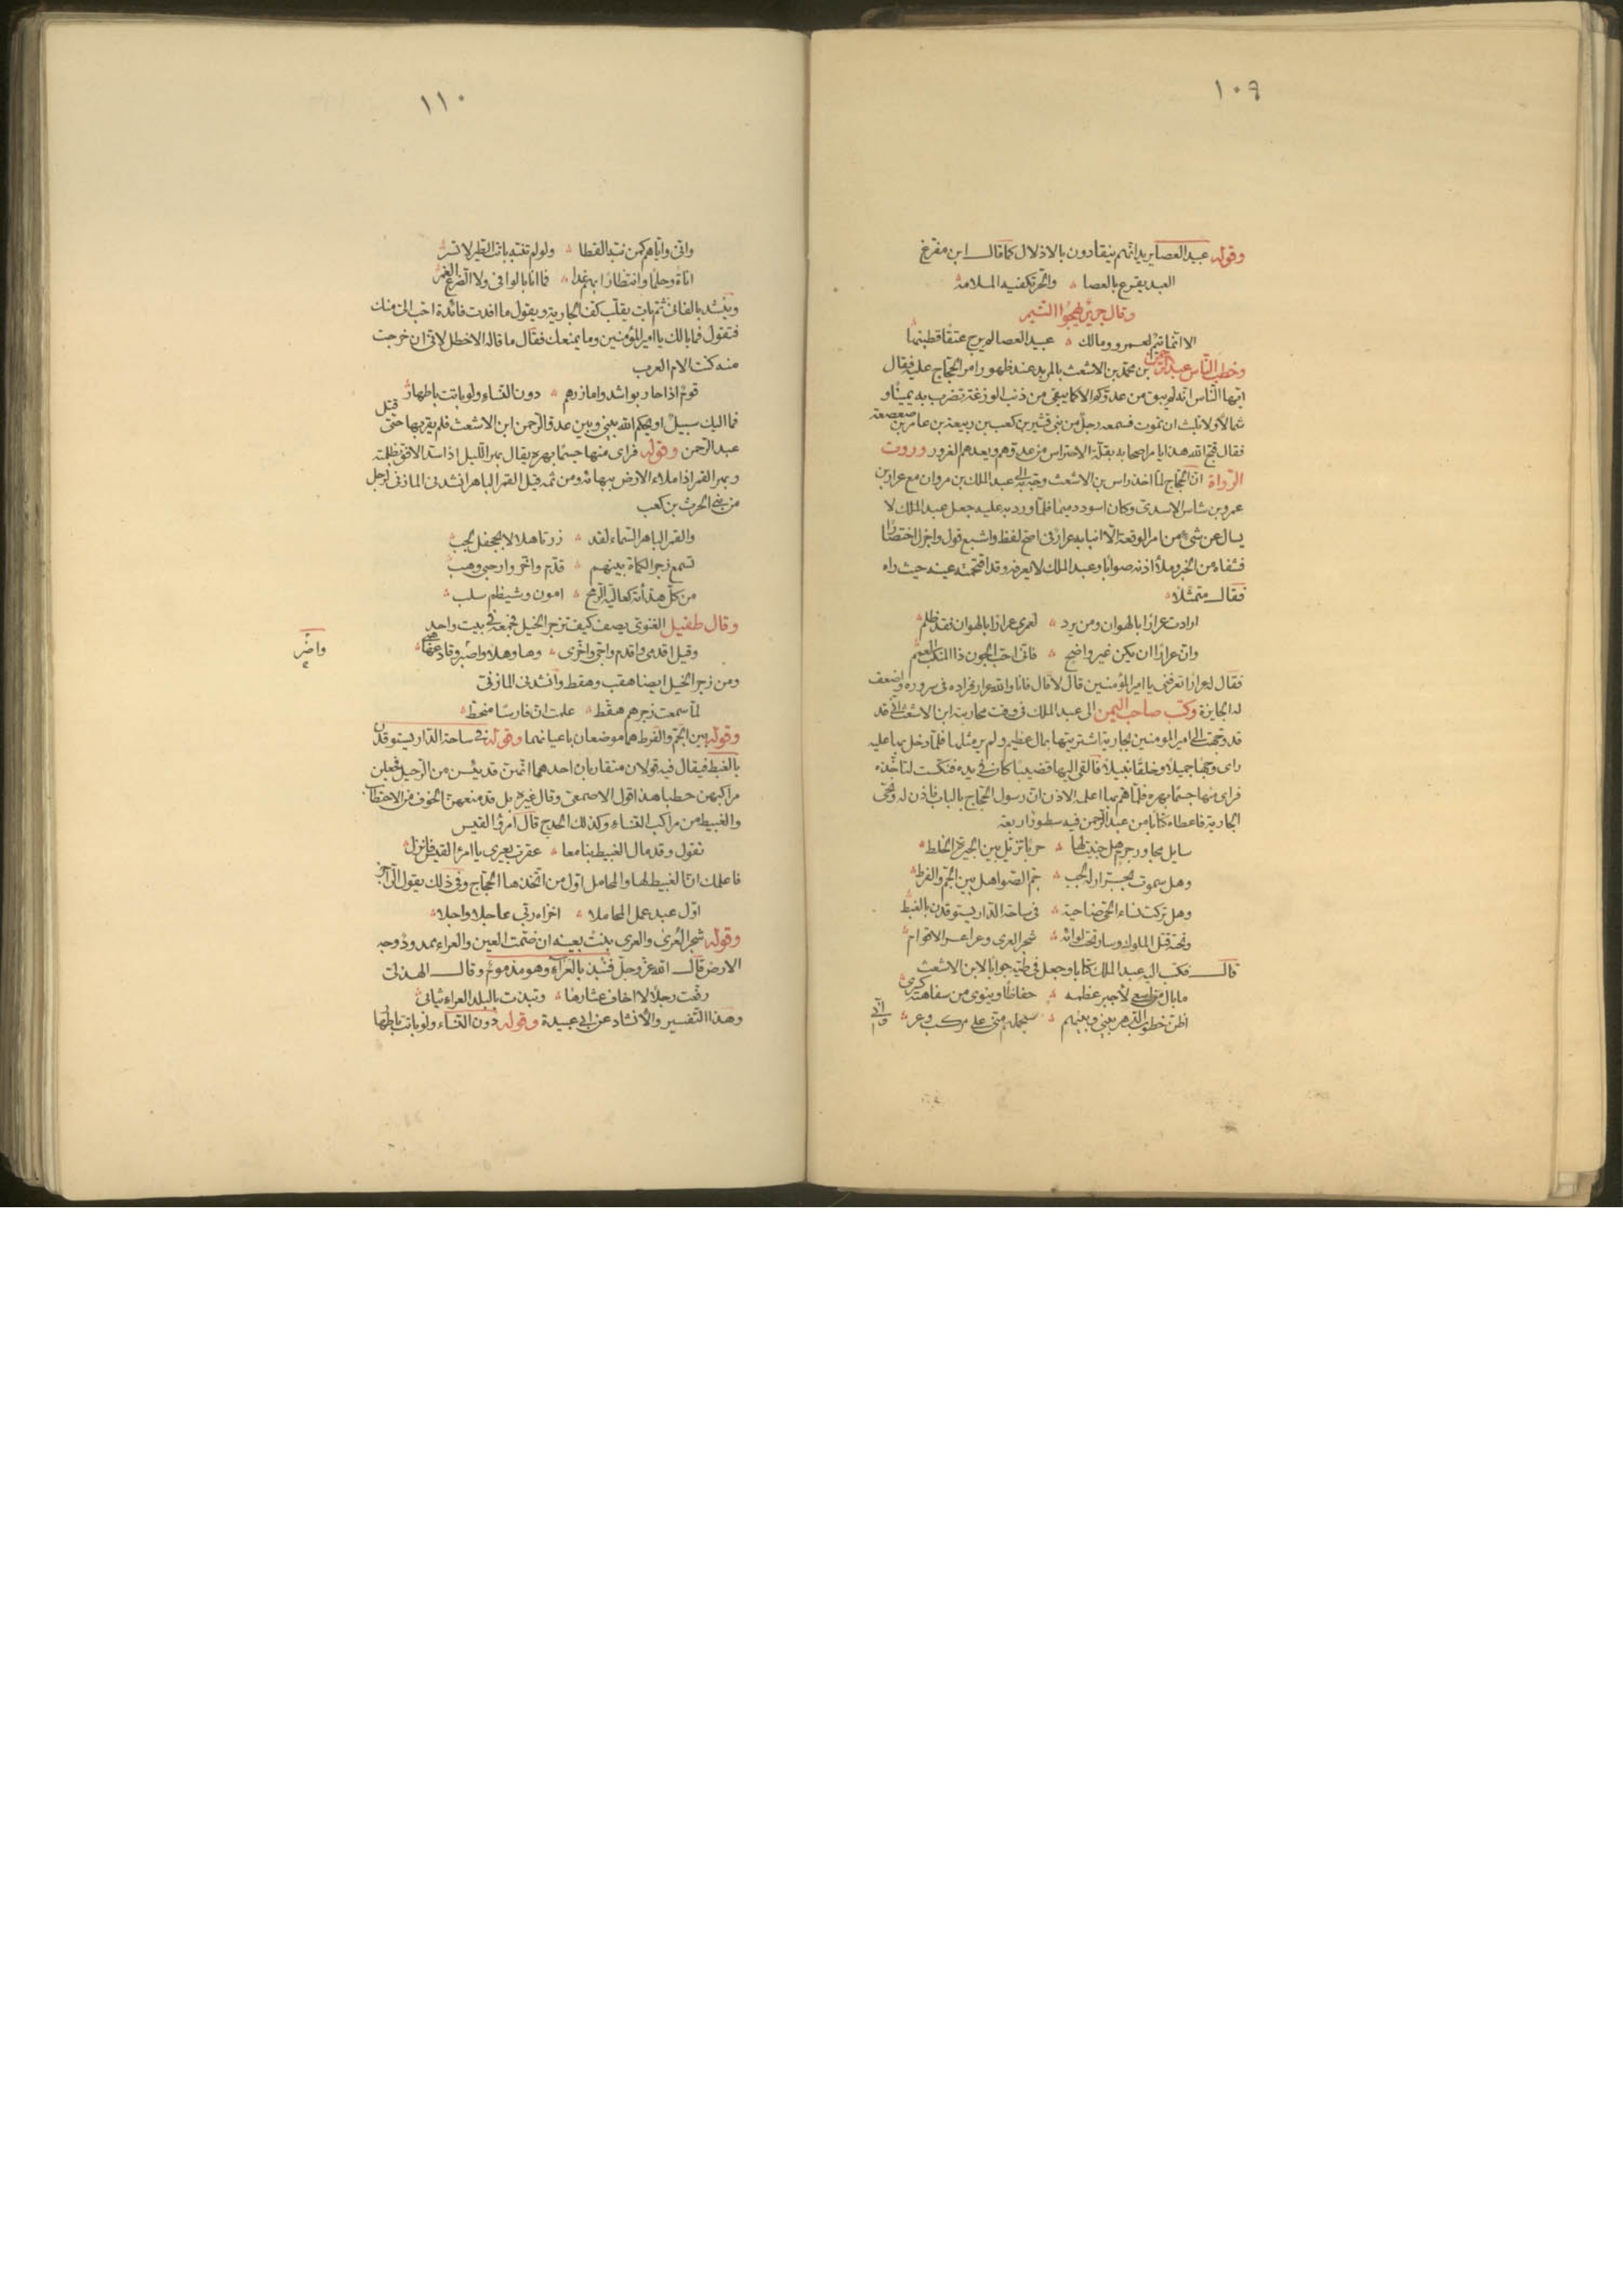 ١٠٩
وقوله عبيد العصا يريد انهم ينقادون بالاذلال كما قال ابن مفرغ
العبد يقرع بالعصا ۞ والحر تكفيه الملامة
وقال جرير يهجوا التيم
الا انما تيم لعمرو ومالك ۞ عبيد العصا لم يرج عتقا قطينها
وخطب الناس عبد الرحمن بن محمد بن الاشعث بالمربد عند ظهور امر الحجاج عليه فقال
ايها الناس انه لم يبق من عدوكم الا كما يبقى من ذنب الوزغة تضرب به يمينا و
شمالا ولا تلبث ان تموت فسمعه رجل من بني قشير بن كعب بن ربيعة بن عامر بن صعصعة
فقال قبح الله هذا يامر اصحابه بقلة الاحتراس من عدوهم ويعدهم الغرور وروت
الرواة ان الحجاج لما اخذ راس بن الاشعث وجه به الى عبد الملك بن مروان مع عرار بن
عمرو بن شاس الاسدى وكان اسود دميما فلما ورد به عليه جعل عبد الملك لا
يسال عن شىء من امر الوقعة الا انبا به عرار فى اصح لفظ واشبع قول واجزل اختصارا
فشفاه من الخبر وملا اذنه صوابا وعبد الملك لا يعرفه وقد اقتحمته عينه حيث راه
فقال متمثلا
ارادت عرارا بالهوان ومن يرد ۞ لعمرى عرارا بالهوان فقد ظلم
وان عرارا ان يكن غير واضح ۞ فانى احب الجون ذا المنكب العمم
فقال له عرار اتعرفنى يا امير المؤمنين قال لا قال فانا والله عرار فزاده فى سروره واضعف
له الجايزة وكتب صاحب اليمن الى عبد الملك فى وقت محاربته ابن الاشعث انى قد
قد وجهت الى امير المومنين بجارية اشتريتها بمال عظيم ولم ير مثلها فلما دخل بها عليه
راى وجها جميلا وخلقا نبيلا فالقى اليها قضيبا كان فى يده فنكست لتاخذه
فراى منها جسما بهره فلما هم بها اعلمه الاذن ان رسول الحجاج بالباب فاذن له ونحى
الجارية فاعطاه كتابا من عبد الرحمن فيه سطور اربعة
سايل مجاور جرم هل جنيت لها ۞ حربا تزيل بين الجيرة الخلط
وهل سموت بجرار له لجب ۞ جم الصواهل بين الجم والفرط
وهل تركت نساء الحى ضاحية ۞ فى ساحة الدار يستوقدن بالغبط
وتحته قتل الملوك وسار تحت لوائه ۞ شجر العرى وعراعر الاقوام
قال فكتب اليه عبد الملك كتابا وجعل فى طيه جوابا لابن الاشعث
ما بال من اسعى لأجبر عظمه ۞ حفاظا وينوى من سفاهته كسرى
اظن خطوب الدهر بينى وبينهم ۞ ستحملهم منى على مركب وعر
١١٠
وانى واياهم كمن نبه القطا ۞ ولو لم تنبه باتت الطير لا تسر
اناة وحلما وانتظارا بهم غدا ۞ فما انا بالوانى ولا الضرع الغمر
وينشد بالفانى ثم بات يقلب كف الجارية ويقول ما افدت فائدة احب الى منك
فتقول فما بالك يا امير المؤمنين وما يمنعك فقال ما قاله الاخطل لانى ان خرجت
منه كنت الام العرب
قوم اذا حاربوا شدوا مازرهم ۞ دون النساء ولو باتت باطهار
فما اليك سبيل او يحكم الله بينى وبين عدو الرحمن ابن الاشعث فلم يقربها حتى قتل
عبد الرحمن وقوله فراى منها جسما بهره يقال بهر الليل اذا سد الافق بظلمته
وبهر القمر اذا ملاء الارض ببهائه ومن ثمه قيل القمر الباهر انشدنى المازنى لرجل
من بنى الحرث بن كعب
والقمر الباهر السماء لقد ۞ زرنا هلالا بجحفل لجب
تسمع زجر الكماة بينهم ۞ قدم واخر وارحبى وهب
من كل هدأنه كعالية الرمح ۞ امون وشيظم سلب
وقال طفيل الغنوى يصف كيف تزجر الخيل فجمعه فى بيت واحد
وقيل اقدمى واقدم واخى واخرى ۞ وها وهلا واضبر وقادعها هبى
واضر
ومن زجر الخيل ايضا هقب وهقط وانشدنى المازنى
لما سمعت زجرهم هقط ۞ علمت ان فارسا منحط
وقوله بين الجم والفرط هما موضعان باعيانهما وقوله فى ساحة الدار يستوقدن
بالغبط فيقال فيه قولان متقاربان احدهما انهن قد يئسن من الرحيل فجعلن
مراكبهن حطبا هذا قول الاصمعى وقال غيره بل قد منعهن الخوف من الاحتطاب
والغبيط من مراكب النساء وكذلك الحدج قال امرؤ القيس
تقول وقد مال الغبيط بنا معا ۞ عقرت بعيرى يا امرا القيس فانزل
فاعلمك ان الغبيط لها والمحامل اول من اتخذها الحجاج وفى ذلك يقول الراجز
اول عبد عمل المحاملا ۞ اخزاه ربى عاجلا واجلا
وقوله شجر العرى والعرى ينبت بعينه ان ضمت العين والعراء ممدود وجه
الارض قال الله عز وجل فنبذ بالعراء وهو مذموم وقال الهذلى
رفعت رجلا لا اخاف عثارها ۞ ونبذت بالبلد العراء ثيابى
وهذا التفسير والانشاد عن ابى عبيدة وقوله دون النساء ولو باتت باطهار